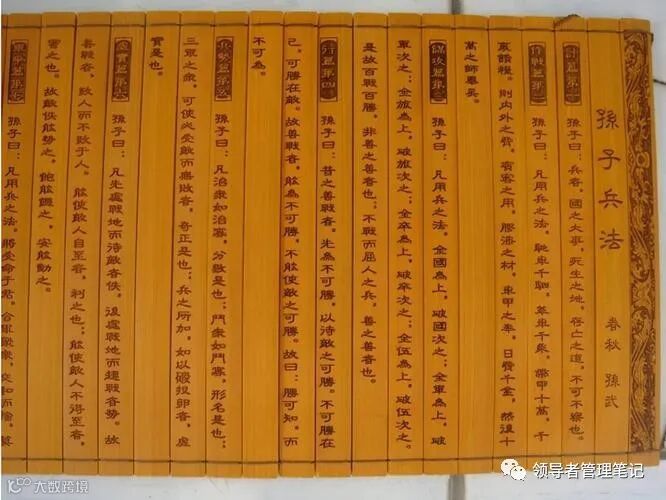 孫子兵法
春秋 孫武
計篇第一 孫子曰：兵者，國之大事，死生之地，存亡之道，不可不察也。
作戰篇第二 孫子曰：凡用兵之法，馳車千駟，革車千乘，帶甲十萬，千
里饋糧，則內外之費，賓客之用，膠漆之材，車甲之奉，日費千金，然後十
萬之師舉矣。
謀攻篇第三 孫子曰：凡用兵之法，全國為上，破國次之；全軍為上，破
軍次之；全旅為上，破旅次之；全卒為上，破卒次之；全伍為上，破伍次之。
是故百戰百勝，非善之善者也；不戰而屈人之兵，善之善者也。
行篇第四 孫子曰：昔之善戰者，先為不可勝，以待敵之可勝。不可勝在
己，可勝在敵。故善戰者，能為不可勝，不能使敵之可勝。故曰：勝可知，而
不可為。
兵勢篇第五 孫子曰：凡治眾如治寡，分數是也；鬥眾如鬥寡，形名是也；
三軍之眾，可使必受敵而無敗者，奇正是也；兵之所加，如以碫投卵者，虛
實是也。
虛實篇第六 孫子曰：凡先處戰地而待敵者佚，後處戰地而趨戰者勞。故
善戰者，致人而不致于人。能使敵人自至者，利之也；能使敵人不得至者，
害之也。故敵佚能勞之，飽能饑之，安能動之。
軍爭篇第七 孫子曰：凡用兵之法，將受命于君，合軍聚眾，交和而舍，莫
大数跨境
领导者管理笔记